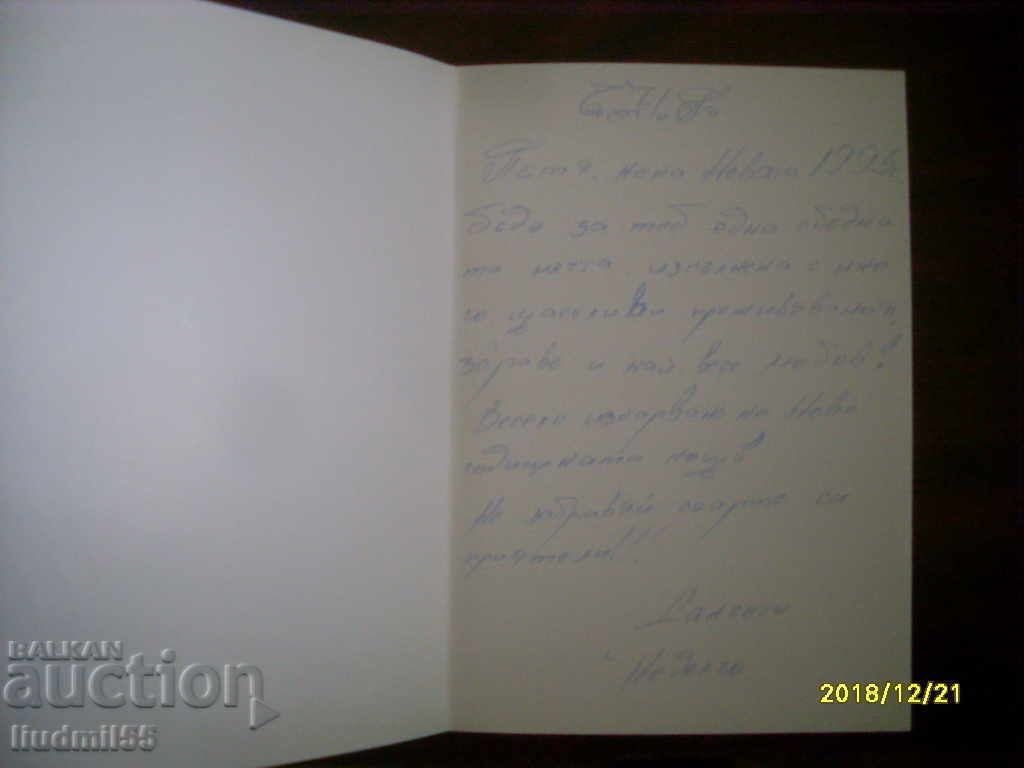 Петя, нека Новата 1995г.
бъде за теб една сбъдна
та мечта изпълнена с мно
го щастливи преживявания,
здраве и най вече любов!
Весело изкарване на Ново
годишната нощ!
Не забравяй старите си
приятели!!!
Галентин
Неделчо
BALKAN
auction
liudmil55
2018/12/21